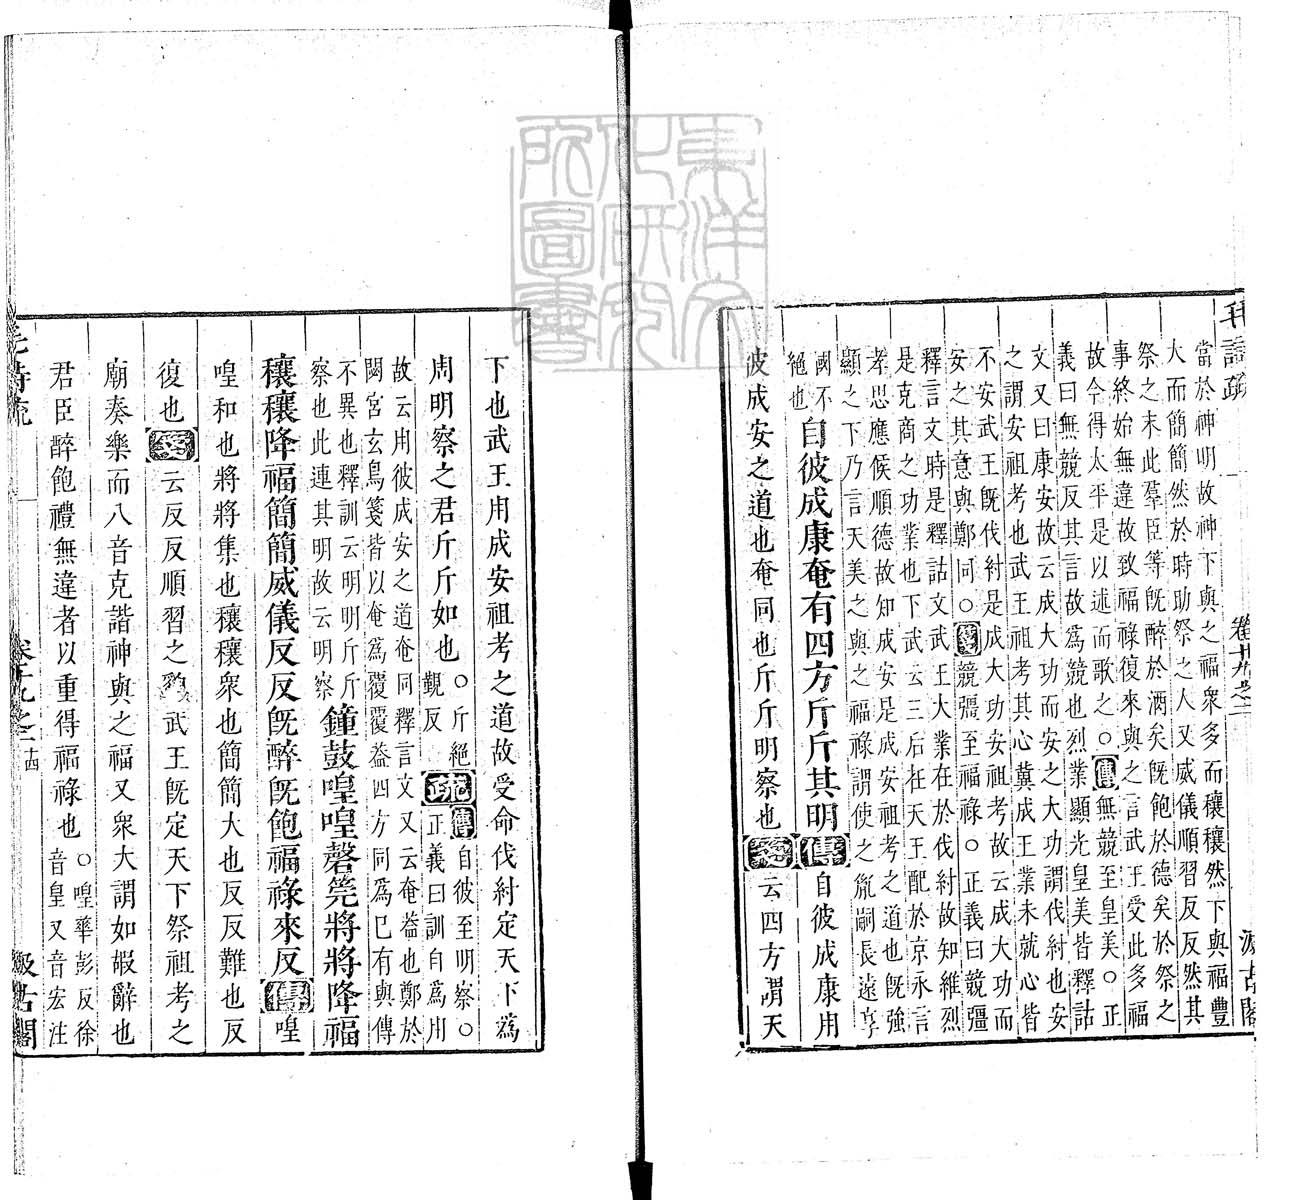 毛詩疏
卷十九之二
汲古閣
當於神明故神下與之福衆多而穰穰然下與福豐
大而簡簡然於時助祭之人又威儀順習反反然其
祭之末此羣臣等既醉於酒矣既飽於德矣於祭之
事終始無違故致福祿復來與之言武王受此多福
故令得太平是以述而歌之○傳無競至皇美○正
義曰無競反其言故爲競也烈業顯光皇美皆釋詁
文又曰康安故云成大功而安之大功謂伐紂也安
之謂安祖考也武王祖考其心冀成王業未就心皆
不安武王既伐紂是成大功安祖考故云成大功而
安之其意與鄭同○箋競彊至福祿○正義曰競彊
釋言文時是釋詁文武王大業在於伐紂故知維烈
是克商之功業也下武云三后在天王配於京永言
孝思應候順德故知成安是成安祖考之道也既強
顯之下乃言天美之與之福祿謂使之胤嗣長遠享
國不
絕也
自彼成康奄有四方斤斤其明傳自彼成康用
彼成安之道也奄同也斤斤明察也箋云四方謂天
下也武王用成安祖考之道故受命伐紂定天下爲
周明察之君斤斤如也○斤絕
覲反
疏傳自彼至明察○
正義曰訓自爲用
故云用彼成安之道奄同釋言文又云奄葢也鄭於
閟宮玄鳥箋皆以奄爲覆覆葢四方同爲已有與傳
不異也釋訓云明明斤斤
察也此連其明故云明察
鐘鼓喤喤磬筦將將降福
穰穰降福簡簡威儀反反既醉既飽福祿來反傳喤
喤和也將將集也穰穰衆也簡簡大也反反難也反
復也箋云反反順習之貌武王既定天下祭祖考之
廟奏樂而八音克諧神與之福又衆大謂如嘏辭也
君臣醉飽禮無違者以重得福祿也○喤華彭反徐
音皇又音宏注
毛詩疏
卷十九之二
十四
汲古閣
東洋文
化研究
所圖書